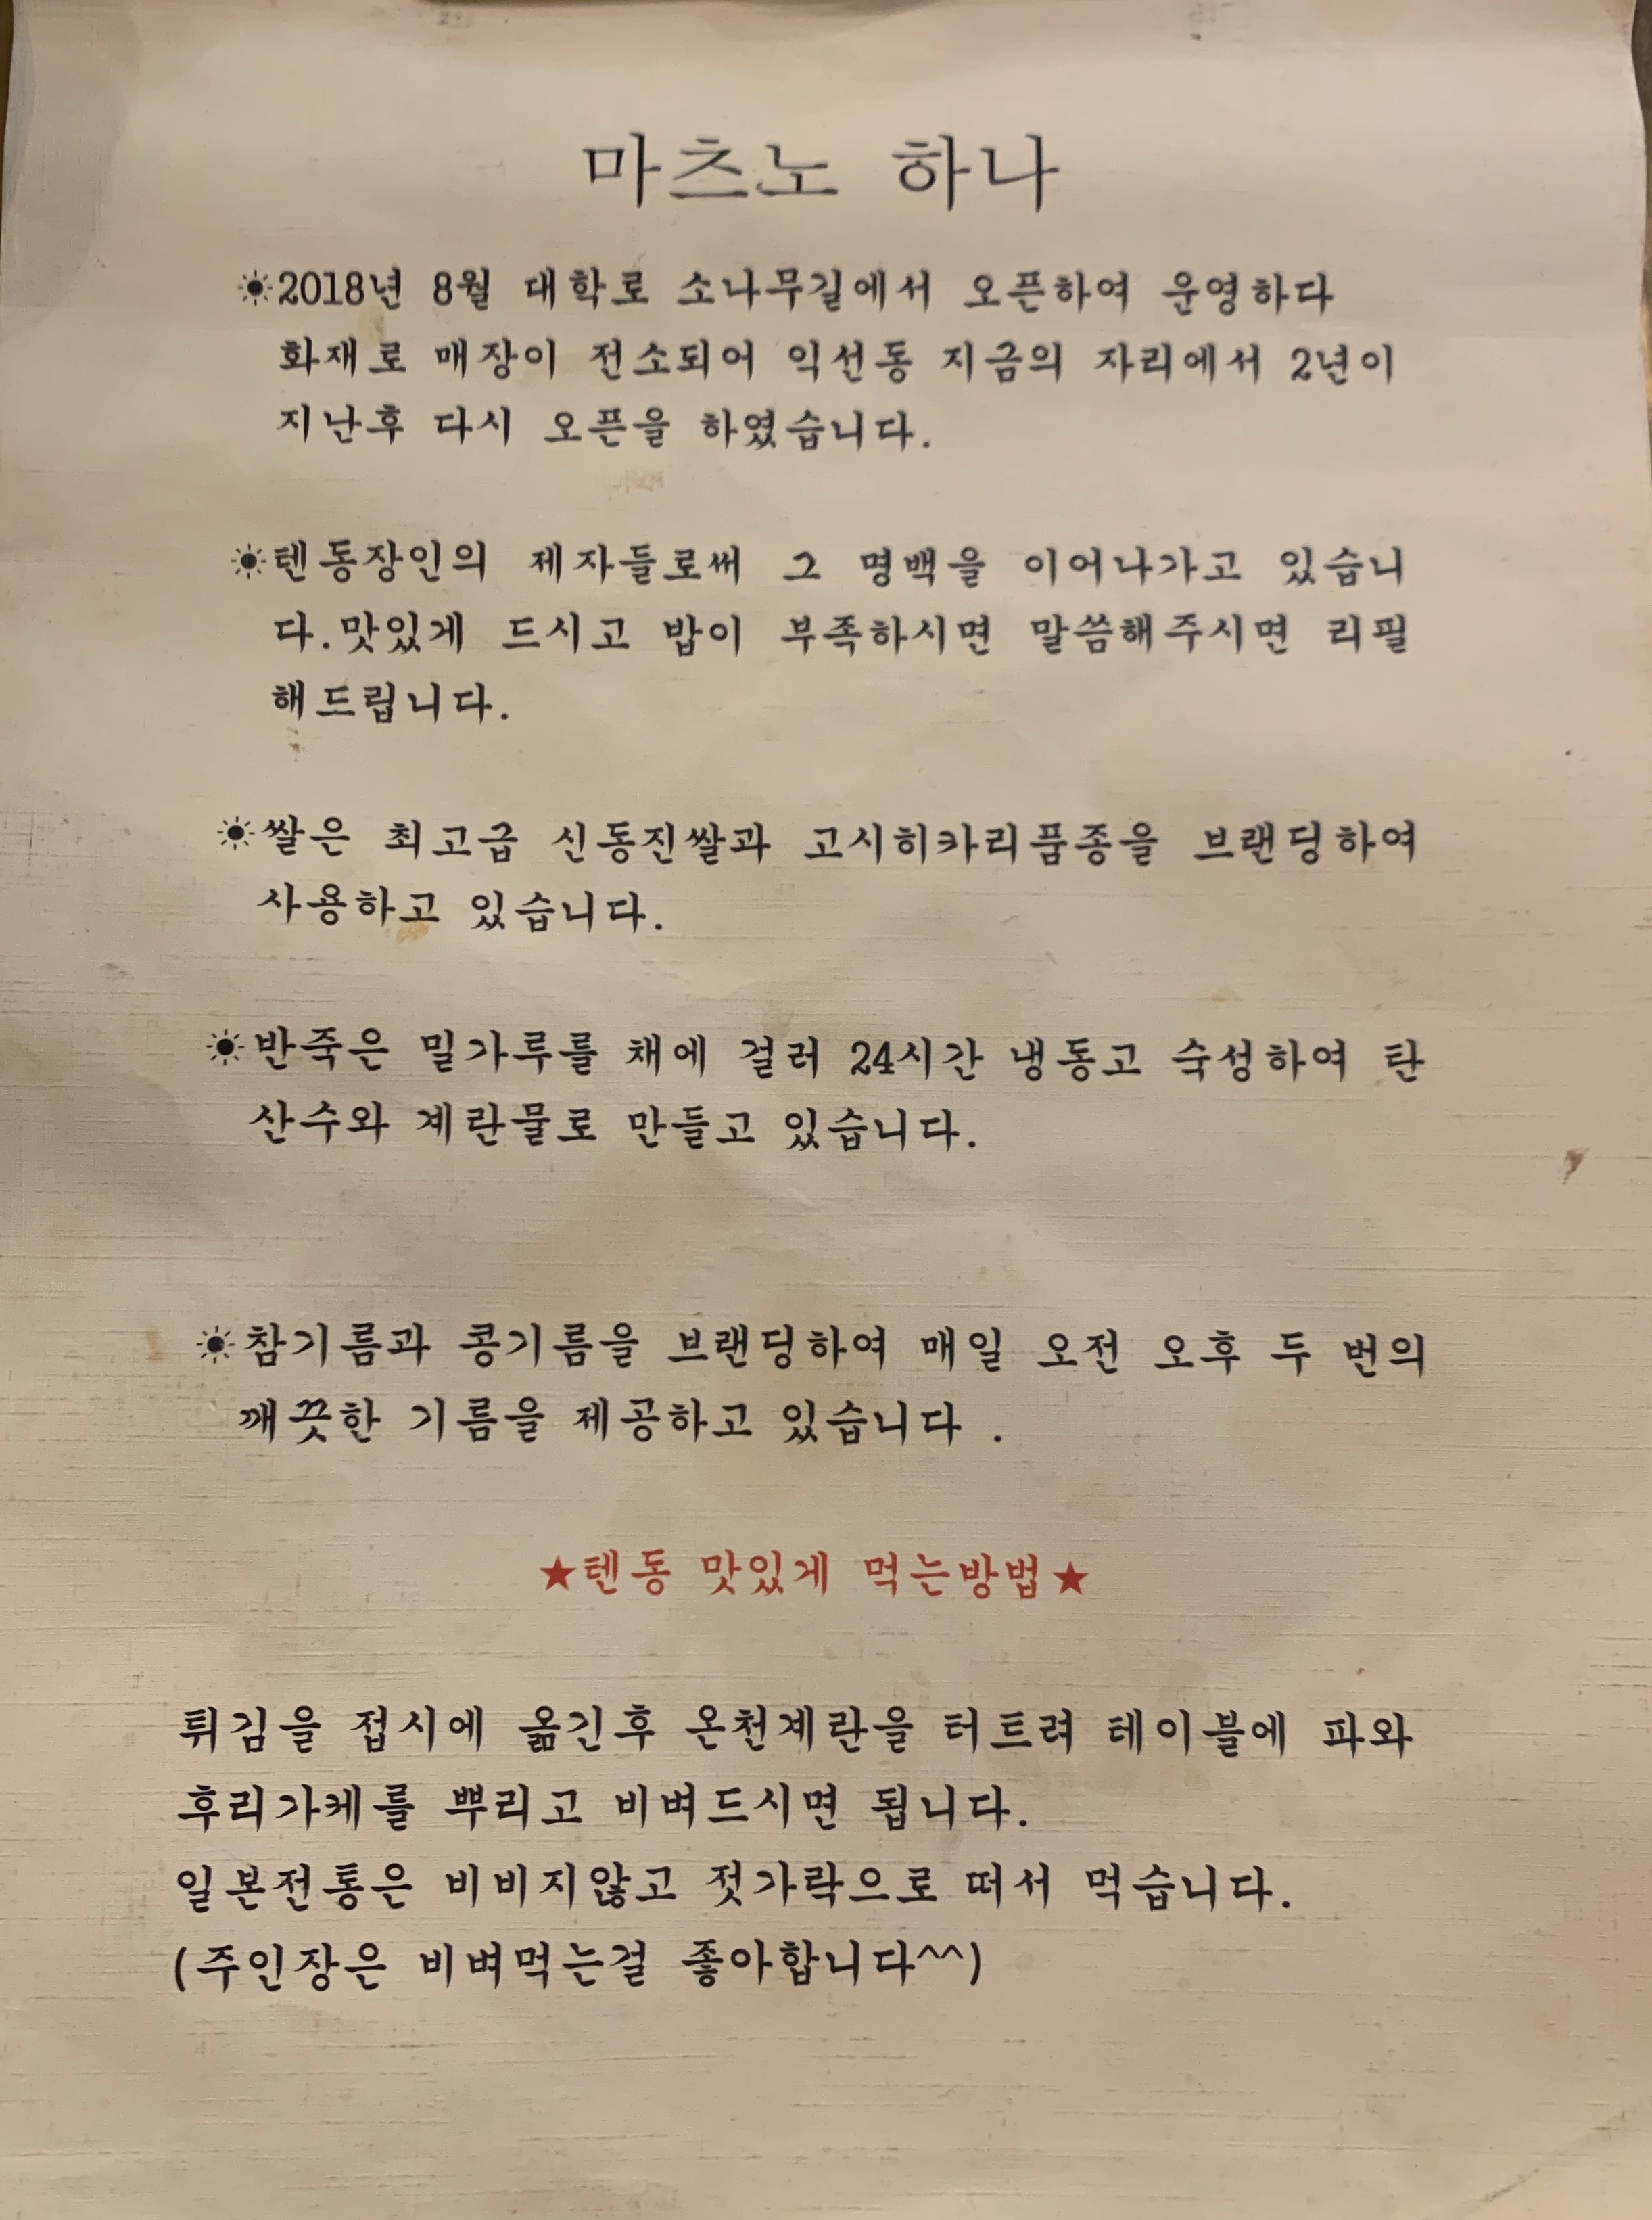 마츠노 하나
☀2018년 8월 대학로 소나무길에서 오픈하여 운영하다
화재로 매장이 전소되어 익선동 지금의 자리에서 2년이
지난후 다시 오픈을 하였습니다.
☀텐동장인의 제자들로써 그 명백을 이어나가고 있습니
다.맛있게 드시고 밥이 부족하시면 말씀해주시면 리필
해드립니다.
☀쌀은 최고급 신동진쌀과 고시히카리품종을 브랜딩하여
사용하고 있습니다.
☀반죽은 밀가루를 채에 걸러 24시간 냉동고 숙성하여 탄
산수와 계란물로 만들고 있습니다.
☀참기름과 콩기름을 브랜딩하여 매일 오전 오후 두 번의
깨끗한 기름을 제공하고 있습니다 .
★텐동 맛있게 먹는방법★
튀김을 접시에 옮긴후 온천계란을 터트려 테이블에 파와
후리가케를 뿌리고 비벼드시면 됩니다.
일본전통은 비비지않고 젓가락으로 떠서 먹습니다.
(주인장은 비벼먹는걸 좋아합니다^^)